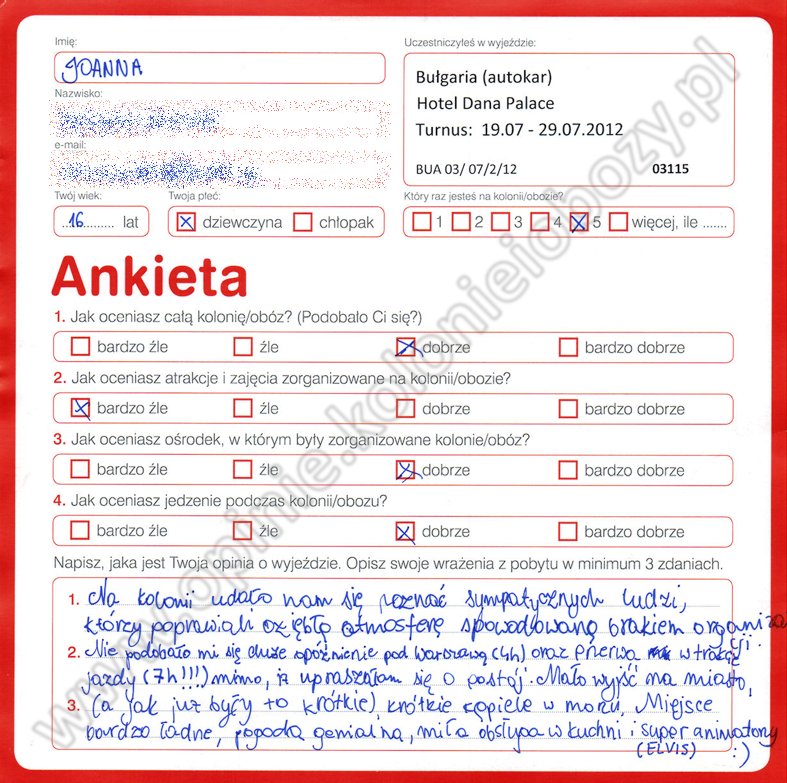 Imię:
JOANNA
Nazwisko:
e-mail:
Twój wiek:
16 lat
Twoja płeć:
dziewczyna chłopak
Uczestniczyłeś w wyjeździe:
Bułgaria (autokar)
Hotel Dana Palace
Turnus: 19.07 - 29.07.2012
BUA 03/ 07/2/12 03115
Który raz jesteś na kolonii/obozie?
1 2 3 4 5 więcej, ile .......
Ankieta
1. Jak oceniasz całą kolonię/obóz? (Podobało Ci się?)
bardzo źle źle dobrze bardzo dobrze
2. Jak oceniasz atrakcje i zajęcia zorganizowane na kolonii/obozie?
bardzo źle źle dobrze bardzo dobrze
3. Jak oceniasz ośrodek, w którym były zorganizowane kolonie/obóz?
bardzo źle źle dobrze bardzo dobrze
4. Jak oceniasz jedzenie podczas kolonii/obozu?
bardzo źle źle dobrze bardzo dobrze
Napisz, jaka jest Twoja opinia o wyjeździe. Opisz swoje wrażenia z pobytu w minimum 3 zdaniach.
1. Na kolonii udało nam się poznać sympatycznych ludzi,
którzy poprawiali oziębłą atmosferę spowodowaną brakiem organiza
cji.
2. Nie podobało mi się duże opóźnienie pod Warszawą (4h) oraz przerwa w trakcie
jazdy (7h!!!) mimo, iż upraszałam się o postój. Mało wyjść na miasto,
3. (a jak już były to krótkie), krótkie kąpiele w morzu. Miejsce
bardzo ładne, pogoda genialna, miła obsługa w kuchni i super animatorzy
(ELVIS) :)
www.opinie.kolonieiobozy.pl